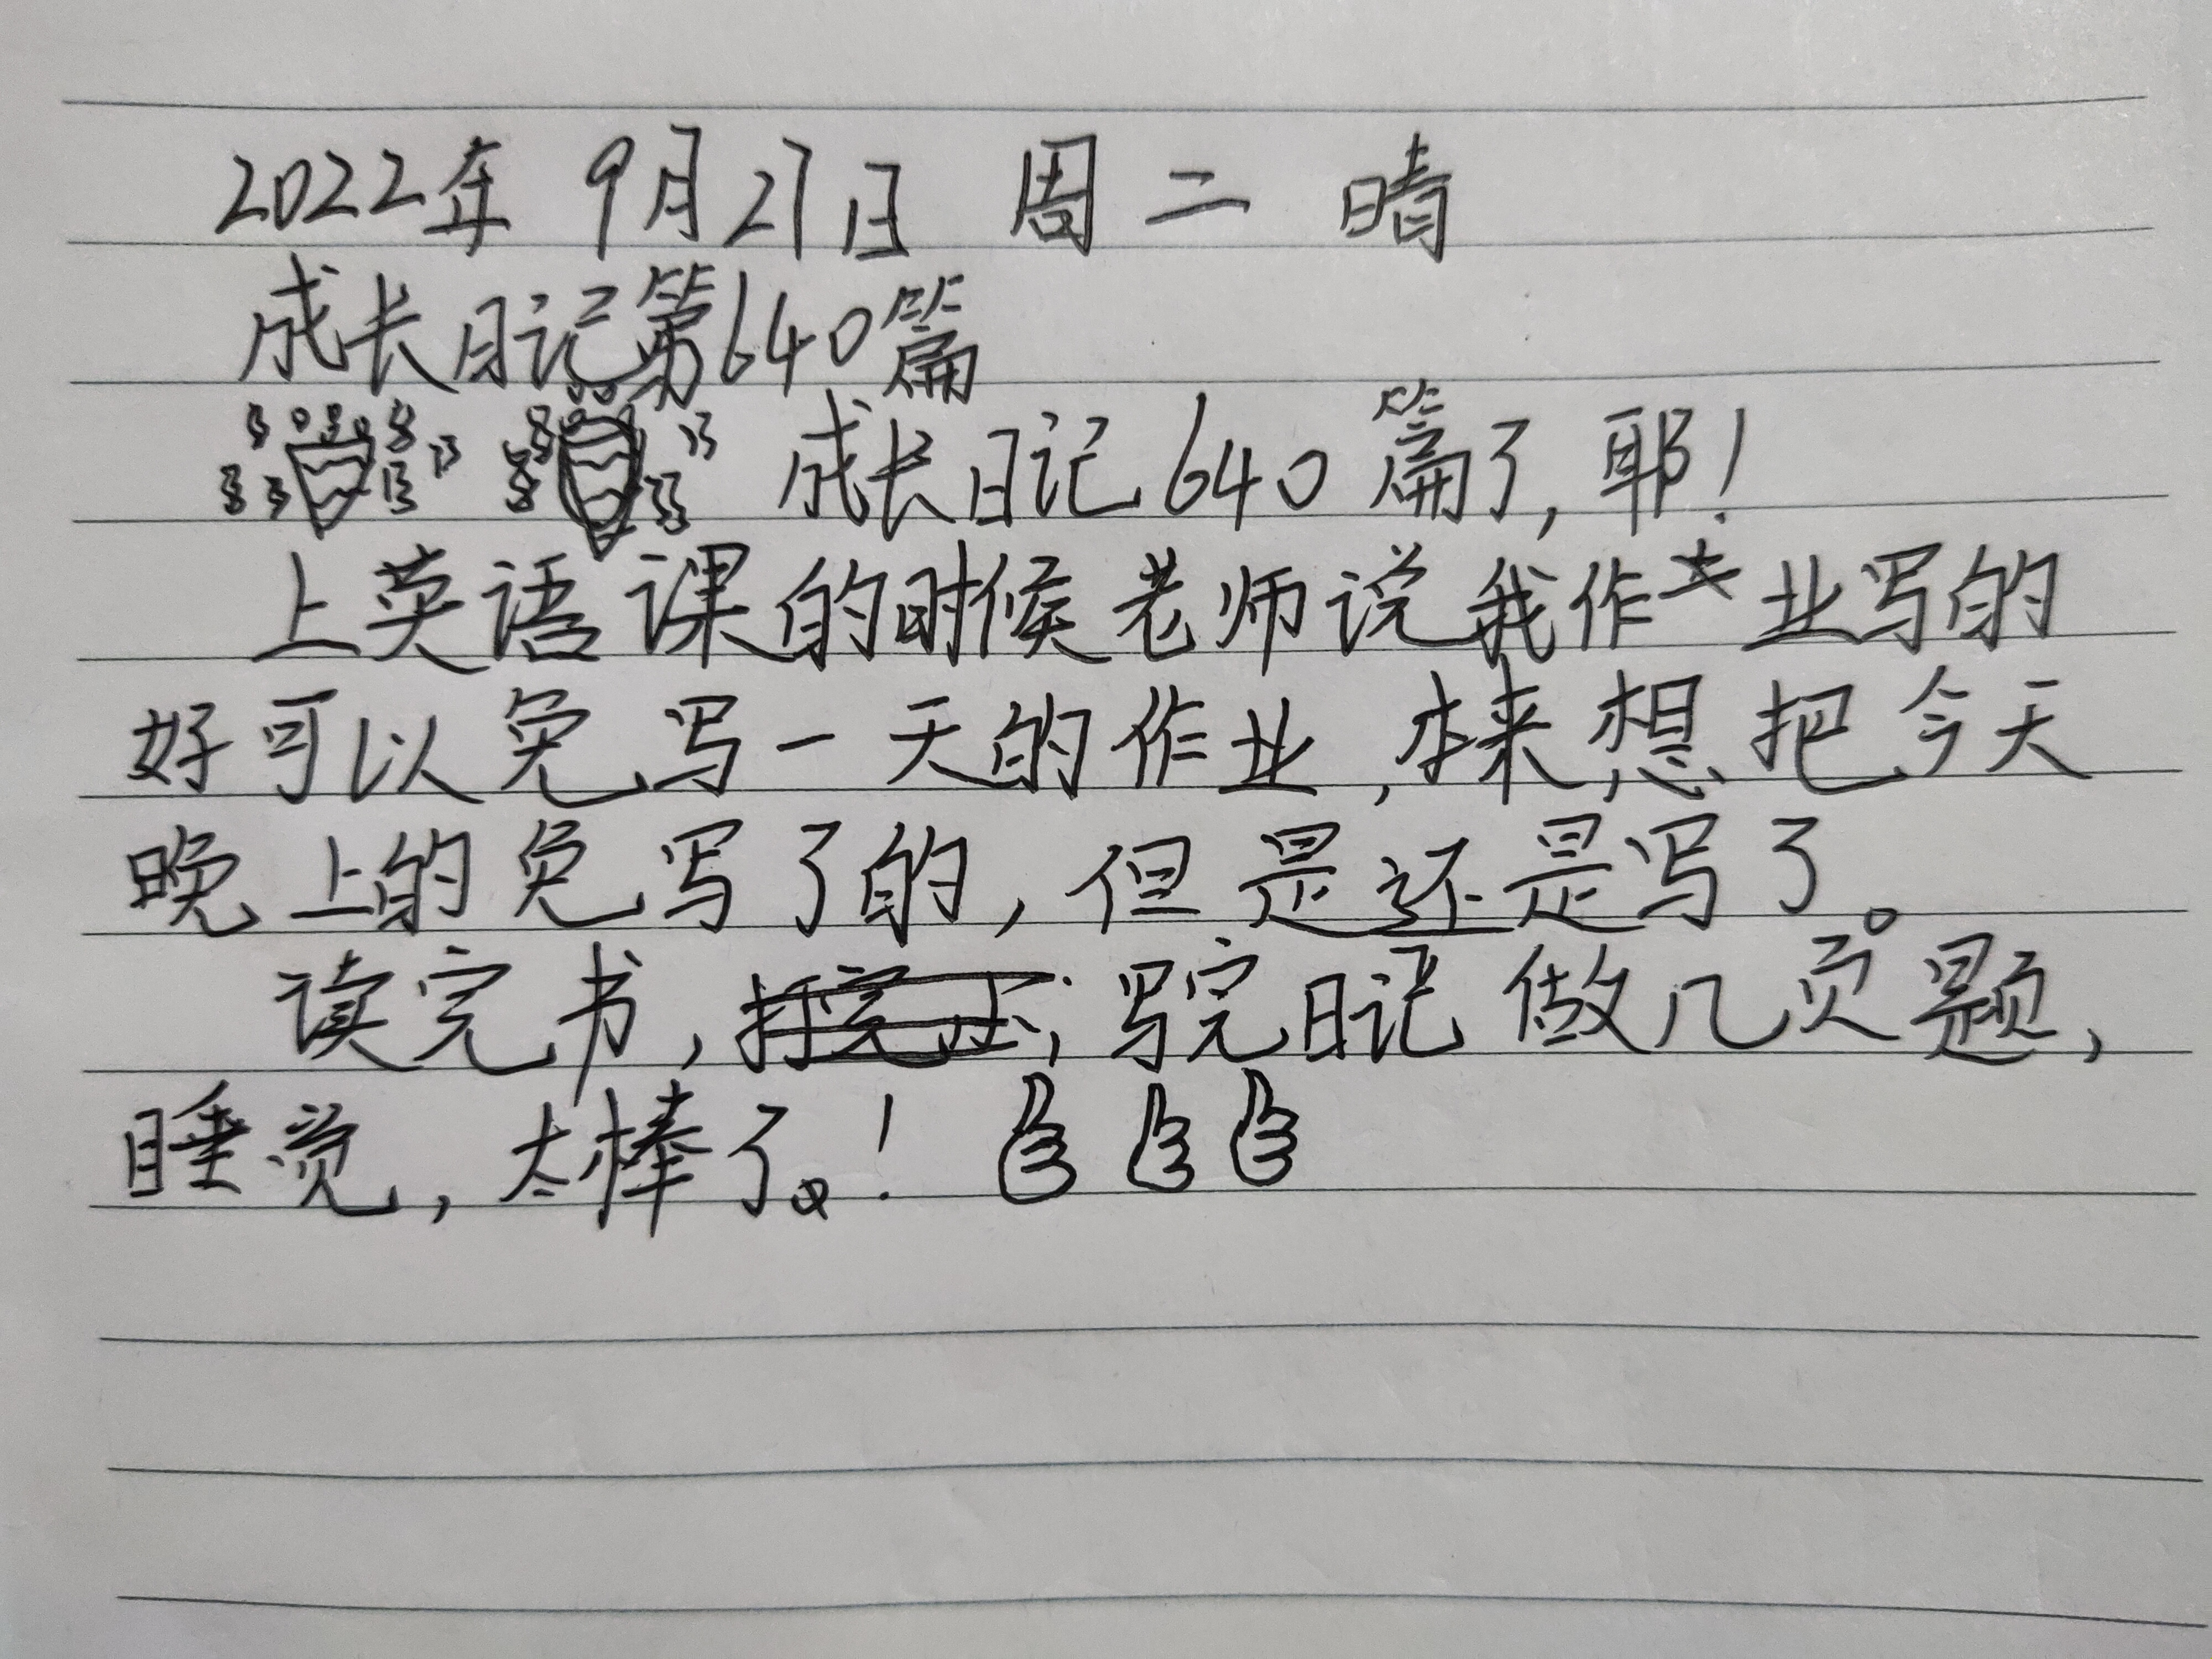 2022年 9月27日 周二 晴
成长日记第640篇
成长日记640篇了,耶!
上英语课的时候老师说我作业写的
好可以免写一天的作业,本来想把今天
晚上的免写了的,但是还是写了。
读完书,写完日记做几页题,
睡觉,太棒了!